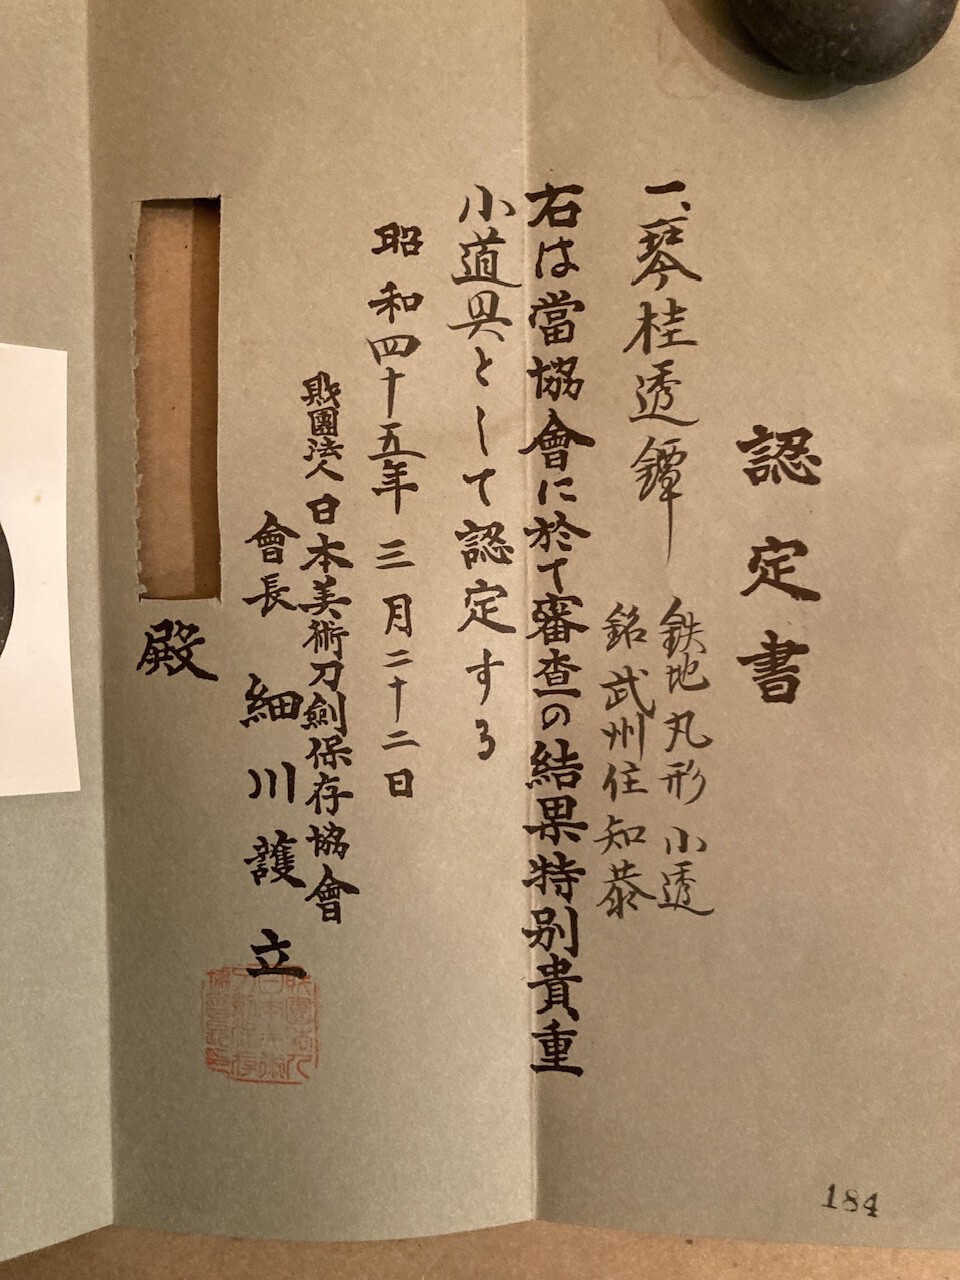 認定書
一、琴桂透鐔
鉄地丸形小透
銘武州住知恭
右は當協會に於て審査の結果特別貴重
小道具として認定する
昭和四十五年三月二十二日
財團法人日本美術刀劍保存協會
會長細川護立
殿
184